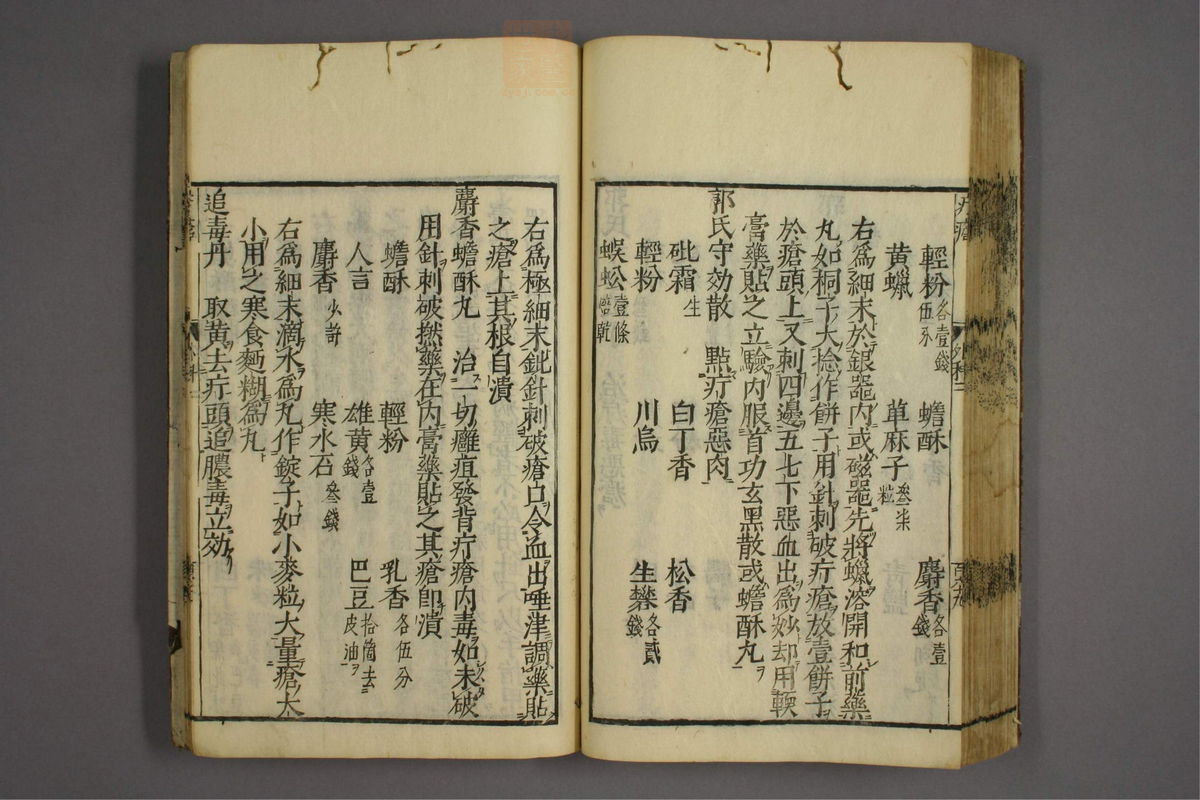 輕粉各壹錢伍分 蟾酥 麝香各壹錢
黄蠟 萆麻子叄柒粒
右爲細末於銀器内或磁器先將蠟溶開和前藥
丸如桐子大捻作餅子用針刺破疔瘡放壹餅子
於瘡頭上又刺四邊五七下惡血出爲妙却用軟
膏藥貼之立驗内服首功玄黑散或蟾酥丸
郭氏守効散 點疔瘡惡肉
砒霜生 白丁香 松香
輕粉 川烏 生礬各貳錢
蜈蚣壹條焙乾
右爲極細末鈚針刺破瘡口令血出唾津調藥貼
之瘡上其根自潰
麝香蟾酥丸 治一切癰疽發背疔瘡内毒如未破
用針刺破撚藥在内膏藥貼之其瘡即潰
蟾酥 輕粉 乳香各伍分
人言 雄黄各壹錢 巴豆拾箇去皮油
麝香少許 寒水石叄錢
右爲細末滴水爲丸作錠子如小麥粒大量瘡大
小用之寒食麵糊爲丸
追毒丹 取黄去疔頭追膿毒立効